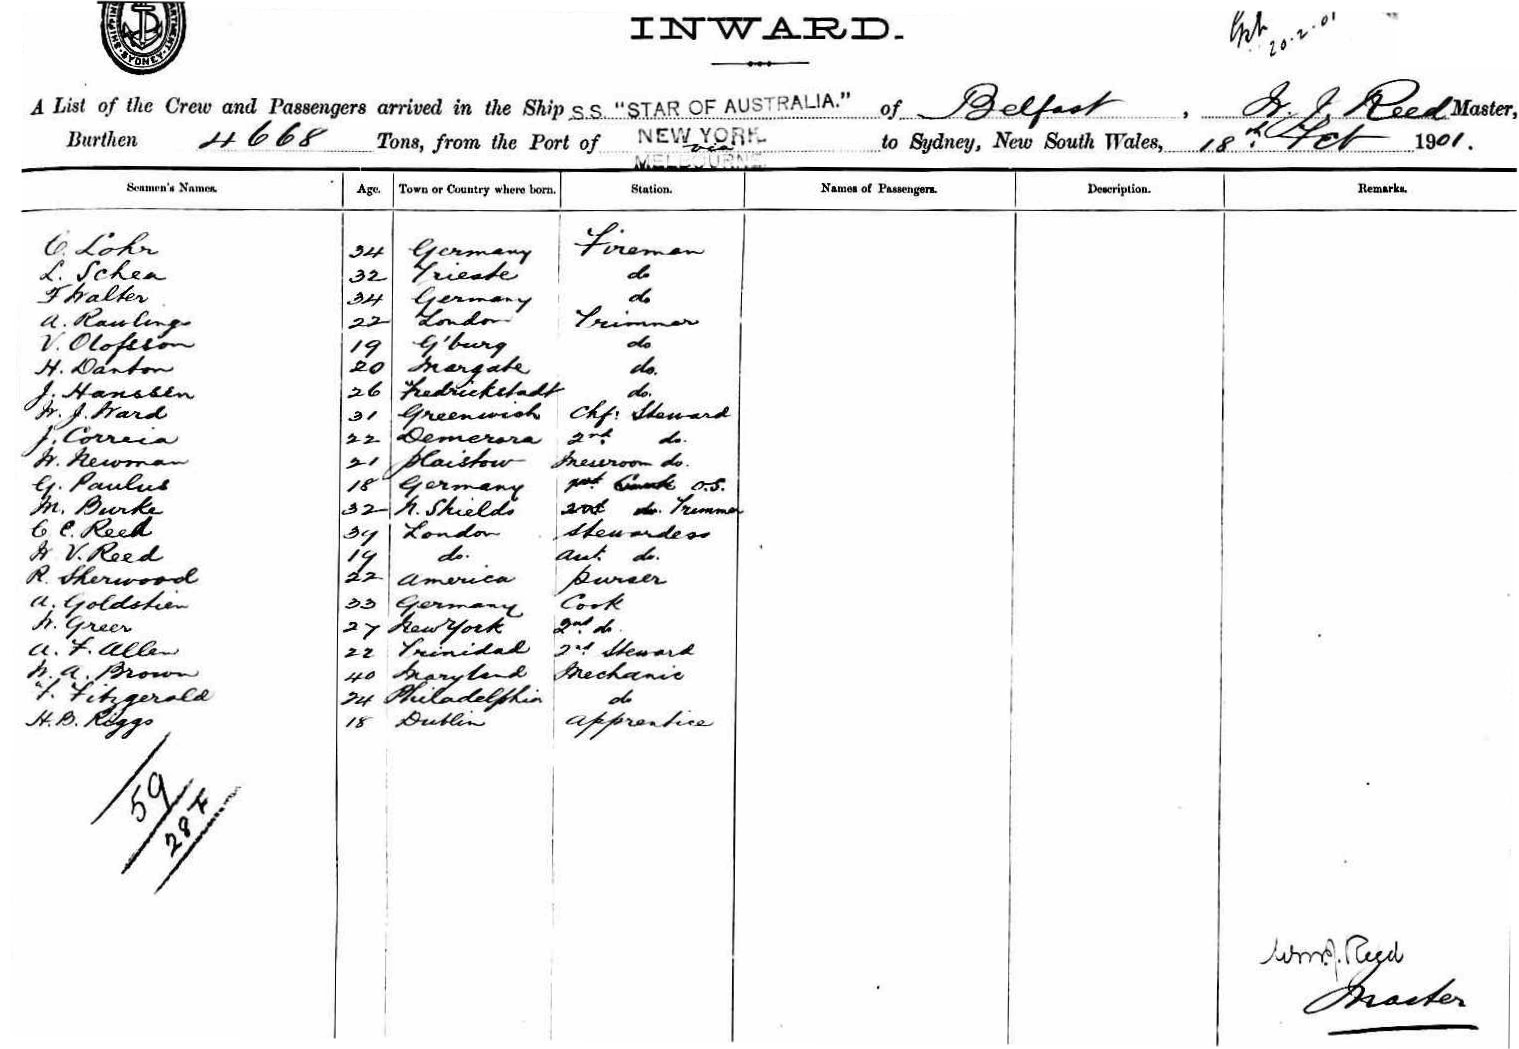 SHIPPING DEPARTMENT SYDNEY
INWARD.
20.2.01
A List of the Crew and Passengers arrived in the Ship S.S. "STAR OF AUSTRALIA." of Belfast, W. J. Reed Master,
Burthen 4668 Tons, from the Port of NEW YORK via MELBOURNE to Sydney, New South Wales, 18th Feb 1901.
Seamen's Names. Age. Town or Country where born. Station. Names of Passengers. Description. Remarks.
C. Lohr 34 Germany Fireman
L. Schea 32 Trieste do
F Walter 34 Germany do
A. Rawlings 22 London Trimmer
V. Olofsson 19 G'burg do
H. Danton 20 Margate do.
J. Hanssen 26 Fredrickstadt do.
W. J. Ward 31 Greenwich Chf: Steward
J. Correia 22 Demerara 2nd do.
W. Newman 21 Plaistow Messroom do.
G. Paulus 18 Germany O.S.
M. Burke 32 N. Shields do. Trimmer
C C. Reed 39 London Stewardess
W V. Reed 19 do. asst. do.
R. Sherwood 22 America purser
A. Goldstien 33 Germany Cook
W. Greer 27 New York 2nd do.
A. F. Allen 22 Trinidad 2nd Steward
W. A. Brown 40 Maryland Mechanic
F. Fitzgerald 24 Philadelphia do
H. B. Riggs 18 Dublin apprentice
59
28 F
Wm. J. Reed
Master